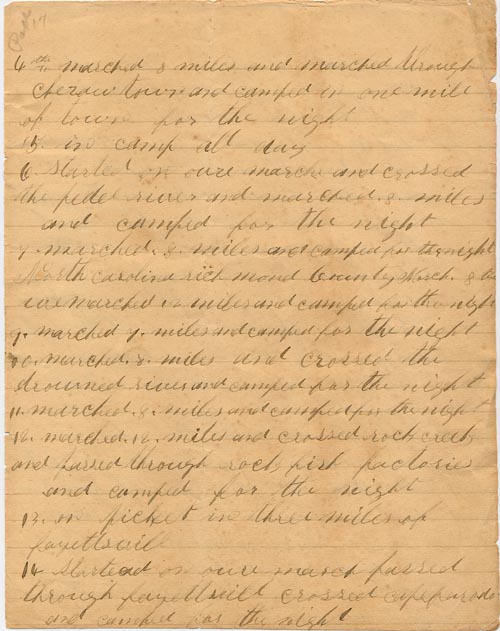 Page 17
4th marched 8 miles and marched through
cheraw town and camped in one mill
of town for the night
15. in camp all day
6. Started on oure marche and crossed
the pedee river and marched. 8. miles
and camped for the night
7. marched. 8. miles and camped for the night
North carolina rich mond County March. 8
we marched 12 miles and camped for the night
9. marched 7. miles and camped for the night
10. marched. 8. miles and crossed the
drowned river and camped for the night
11. marched. 8. miles and camped for the night
12. marched. 12. miles and crossed rock creek
and passed through rock fish factories
and camped for the night
13. on picket in three miles of
fayettsvill
14 Started on oure march passed
through fayettsvill crossed
and camped for the night